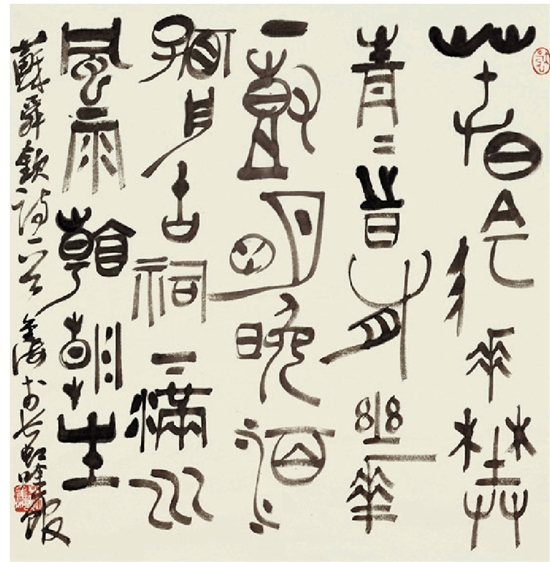 春陰垂野草
青〻時有幽華
一樹明晚泊
孤舟古祠下滿川
風雨看潮生
蘇舜欽詩一首